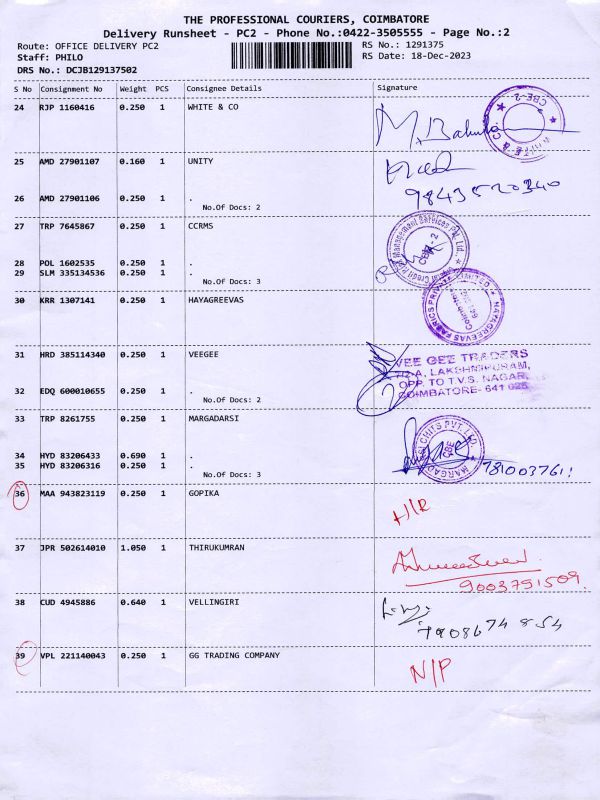 THE PROFESSIONAL COURIERS, COIMBATORE
Delivery Runsheet - PC2 - Phone No.:0422-3505555 - Page No.:2
Route: OFFICE DELIVERY PC2
RS No.: 1291375
Staff: PHILO
RS Date: 18-Dec-2023
DRS No.: DCJB129137502
S No Consignment No Weight PCS Consignee Details Signature
24 RJP 1160416 0.250 1 WHITE & CO
CBE-2
25 AMD 27901107 0.160 1 UNITY
26 AMD 27901106 0.250 1 .
No.Of Docs: 2
9843520340
27 TRP 7645867 0.250 1 CCRMS
28 POL 1602535 0.250 1 .
29 SLM 335134536 0.250 1 .
No.Of Docs: 3
30 KRR 1307141 0.250 1 HAYAGREEVAS
HAYAGREEVAS FABRICS PRIVATE LIMITED
Coimbatore
31 HRD 385114340 0.250 1 VEEGEE
VEE GEE TRADERS
LAKSHMIPURAM,
OPP. TO T.V.S. NAGAR,
COIMBATORE- 641 025
32 EDQ 600010655 0.250 1 .
No.Of Docs: 2
33 TRP 8261755 0.250 1 MARGADARSI
34 HYD 83206433 0.690 1 .
35 HYD 83206316 0.250 1 .
No.Of Docs: 3
CHITS PVT. LTD.
CBE
36 MAA 943823119 0.250 1 GOPIKA
37 JPR 502614010 1.050 1 THIRUKUMRAN
9003791509
38 CUD 4945886 0.640 1 VELLINGIRI
7908674854
39 VPL 221140043 0.250 1 GG TRADING COMPANY
N/P